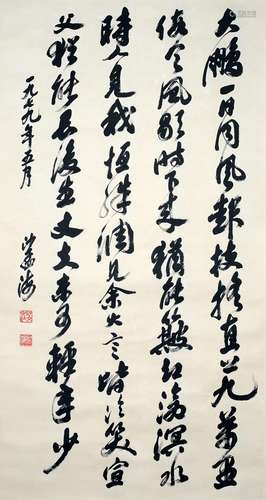 大鵬一日同風起扶搖直上九萬里
假令風歇時下來猶能簸却滄溟水
時人見我恒殊調見余大言皆冷笑宣
父猶能畏後生丈夫未可輕年少
一九七九年五月
沙孟海